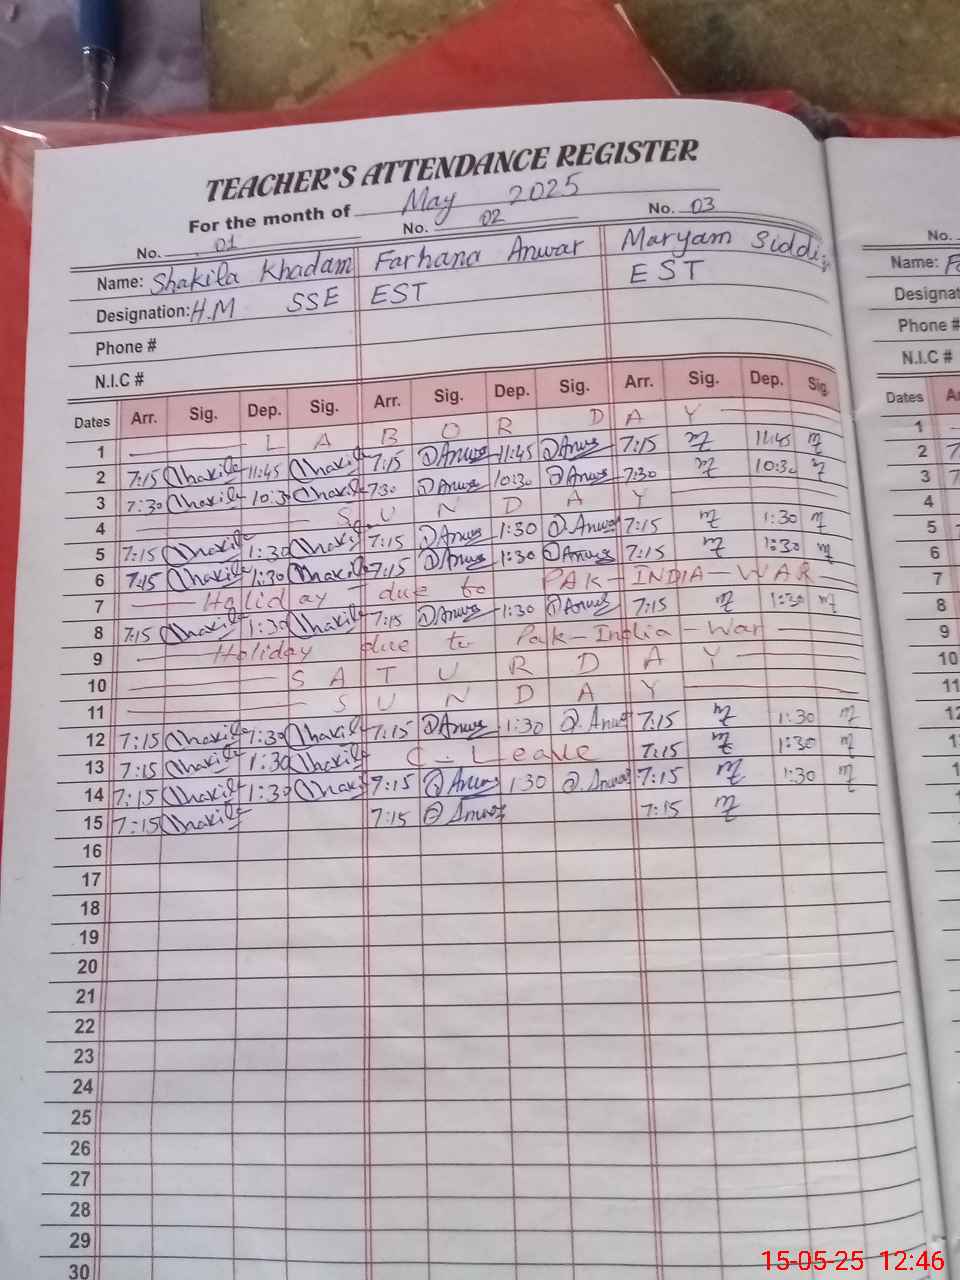 TEACHER'S ATTENDANCE REGISTER
For the month of May 2025
No. 01 No. 02 No. 03
Name: Shakila Khadam Farhana Anwar Maryam Siddi
Designation: H.M SSE EST EST
Phone #
N.I.C #
Dates Arr. Sig. Dep. Sig. Arr. Sig. Dep. Sig. Arr. Sig. Dep. Sig.
1 LABOR DAY
2 7:15 Shakila 11:45 Shakila 7:15 Anwar 11:45 Anwar 7:15 11:45
3 7:30 Shakila 10:30 Shakila 7:30 Anwar 10:30 Anwar 7:30 10:30
4 SUNDAY
5 7:15 Shakila 1:30 Shakila 7:15 Anwar 1:30 Anwar 7:15 1:30
6 7:15 Shakila 1:30 Shakila 7:15 Anwar 1:30 Anwar 7:15 1:30
7 Holiday due to PAK-INDIA-WAR
8 7:15 Shakila 1:30 Shakila 7:15 Anwar 1:30 Anwar 7:15 1:30
9 Holiday due to Pak-India-War
10 SATURDAY
11 SUNDAY
12 7:15 Shakila 1:30 Shakila 7:15 Anwar 1:30 Anwar 7:15 1:30
13 7:15 Shakila 1:30 Shakila C-Leave 7:15 1:30
14 7:15 Shakila 1:30 Shakila 7:15 Anwar 1:30 Anwar 7:15 1:30
15 7:15 Shakila 7:15 Anwar 7:15
16
17
18
19
20
21
22
23
24
25
26
27
28
29
30
No.
Name:
Designat
Phone #
N.I.C #
Dates
1
2
3
4
5
6
7
8
9
10
11
12
15-05-25 12:46